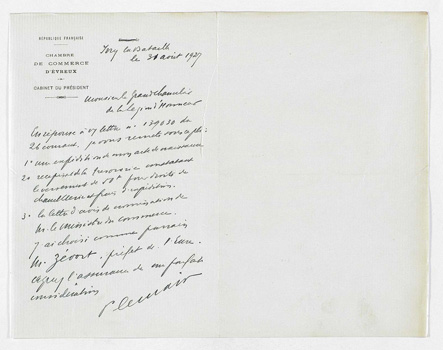 RÉPUBLIQUE FRANÇAISE
CHAMBRE
DE COMMERCE
D'ÉVREUX
CABINET DU PRÉSIDENT
Ivry la Bataille
le 31 août 1927
Monsieur le Grand Chancelier
de la Légion d'Honneur
En réponse à v/ lettre n° 139030 du
26 courant, je vous remets sous pli :
1° une expédition de mon acte de naissance
2° récépissé de trésorerie constatant
le versement de pour droits de
chancellerie et frais d'expédition.
3° la lettre d'avis de nomination de
M. le ministre du commerce.
J'ai choisi comme parrain
M. préfet de l'Eure.
l'assurance de ma parfaite
considération